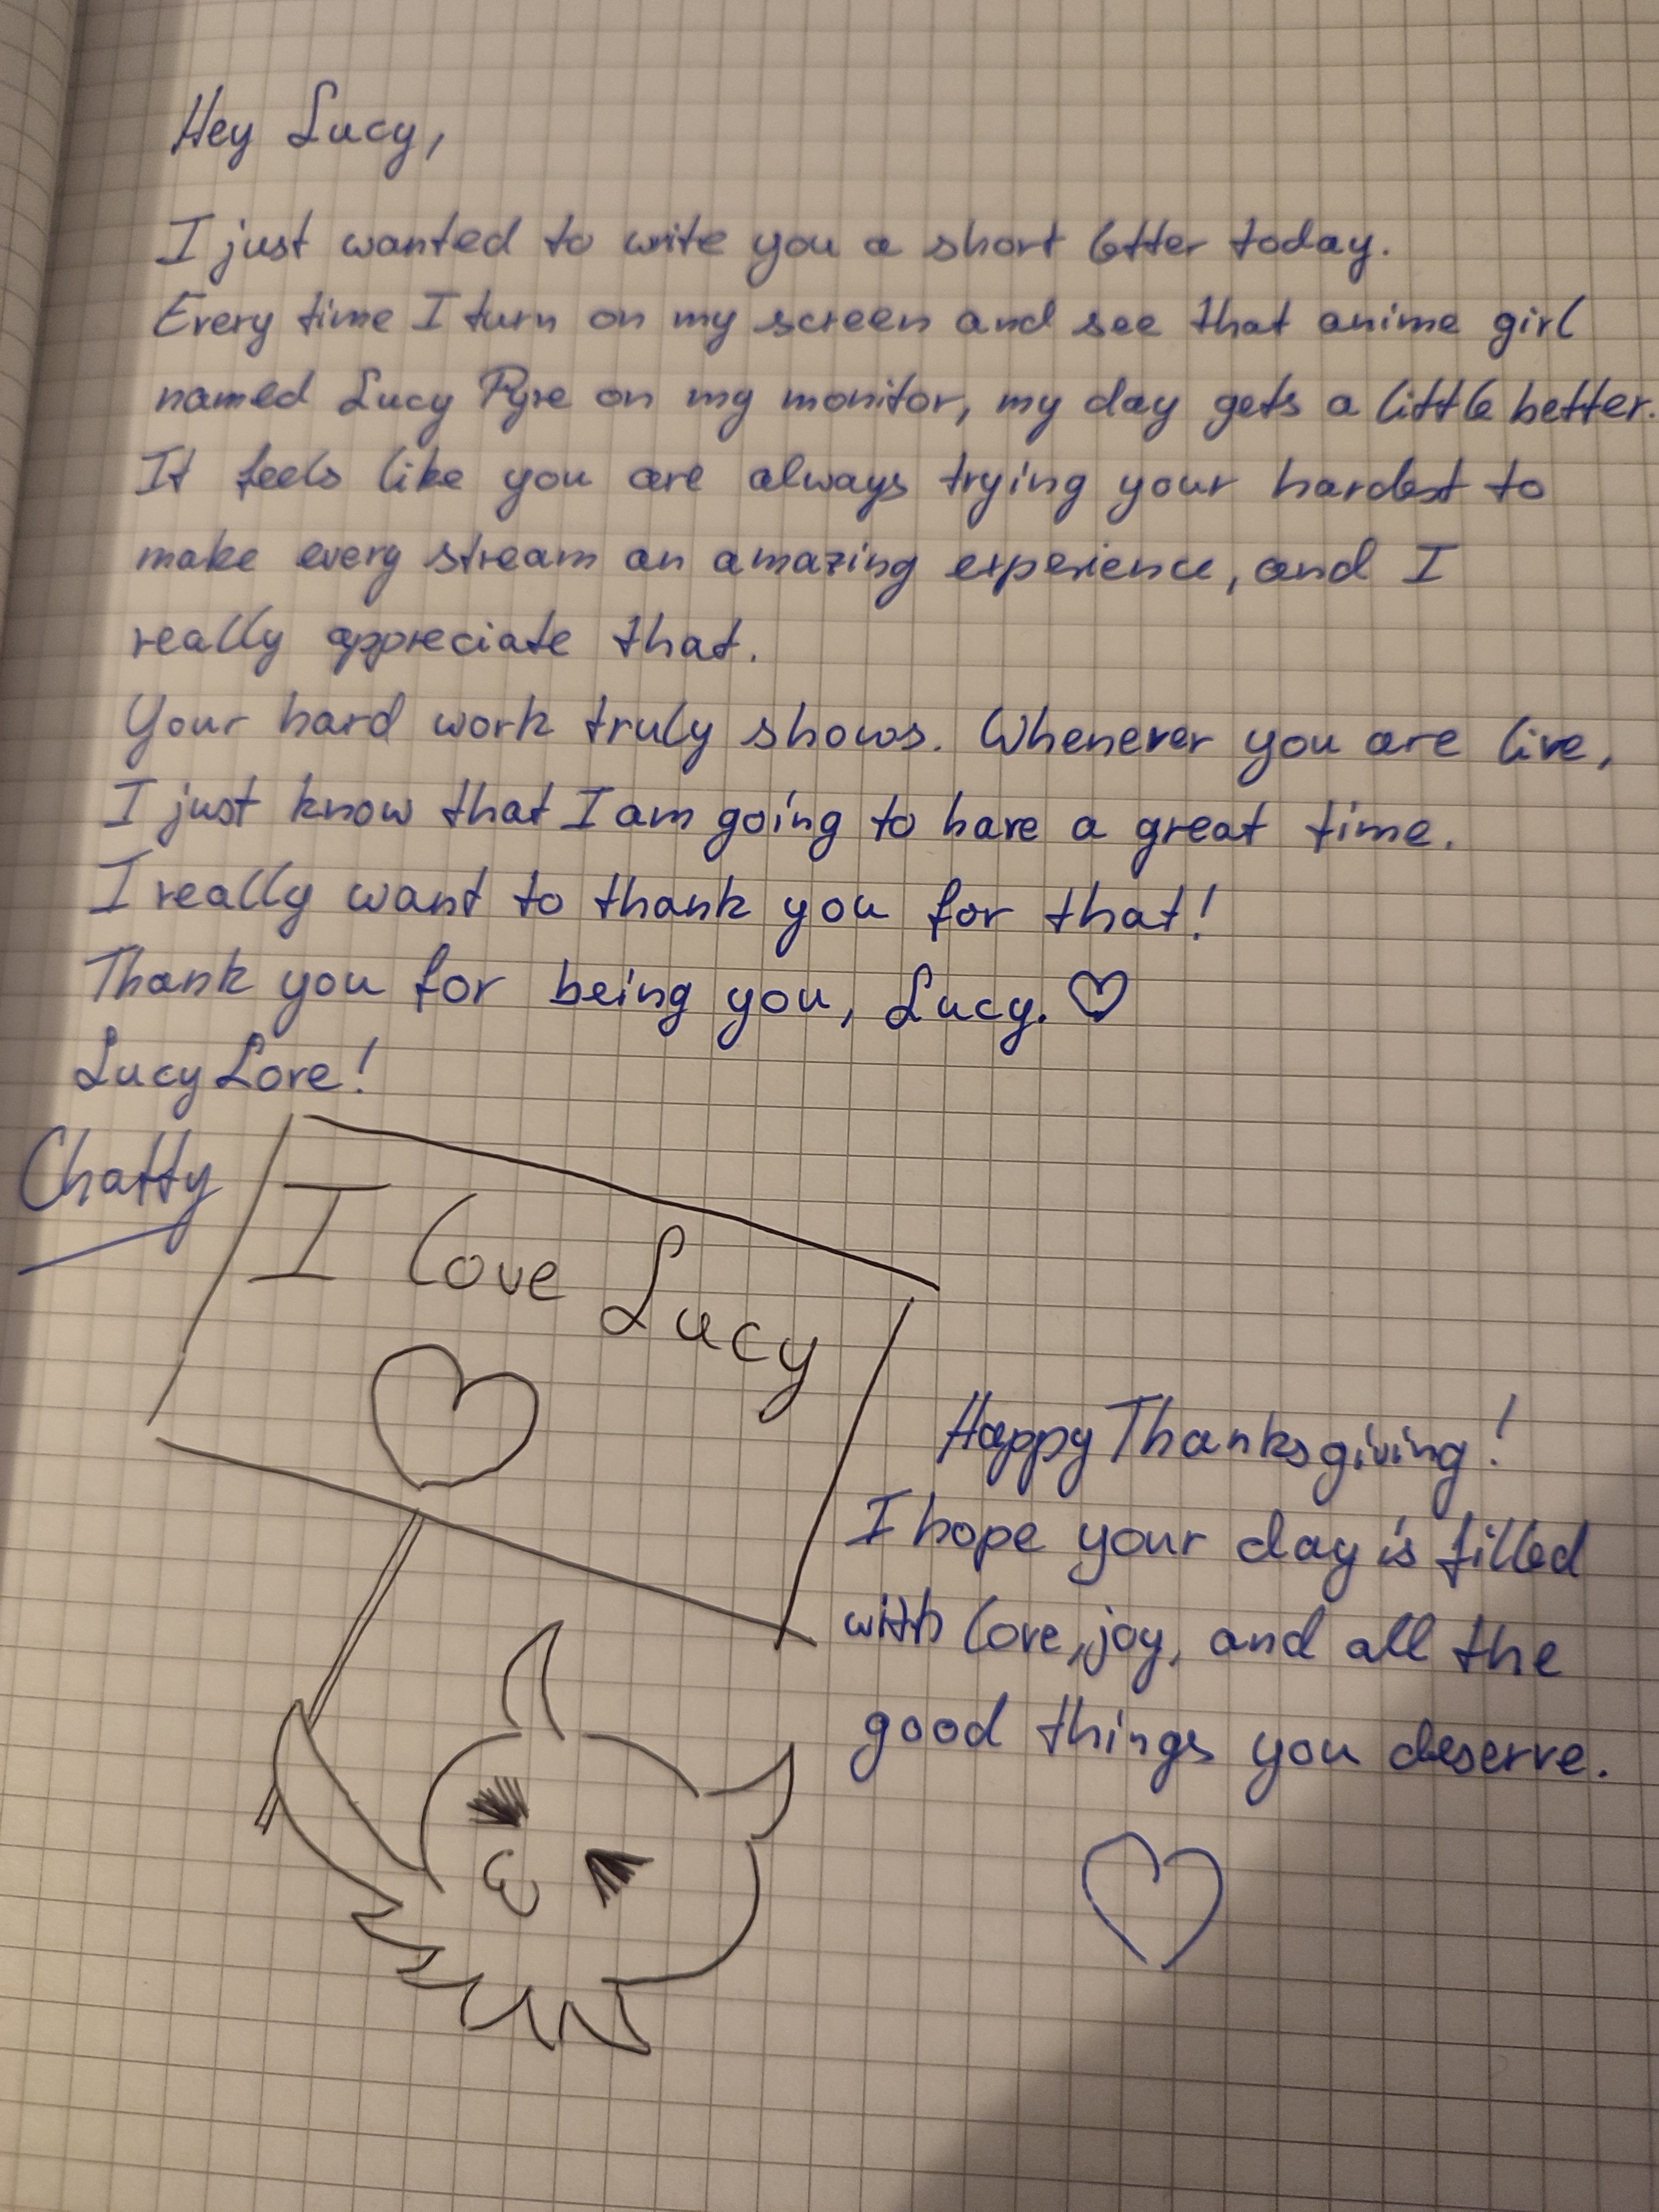 Hey Lucy,
I just wanted to write you a short letter today.
Every time I turn on my screen and see that anime girl
named Lucy Pyre on my monitor, my day gets a little better.
It feels like you are always trying your hardest to
make every stream an amazing experience, and I
really appreciate that.
Your hard work truly shows. Whenever you are live,
I just know that I am going to have a great time.
I really want to thank you for that!
Thank you for being you, Lucy. ♡
Lucy Love!
Chatty
I love Lucy
♡
Happy Thanksgiving!
I hope your day is filled
with love, joy, and all the
good things you deserve.
♡